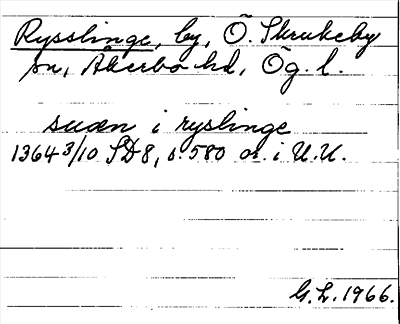 Rysslinge, by, Ö. Skrukeby
sn, Åkerbo hd, Ög. l.
suæn i ryslinge
1364 3/10 SD8, s. 580 or. i U.U.
G.L. 1966.